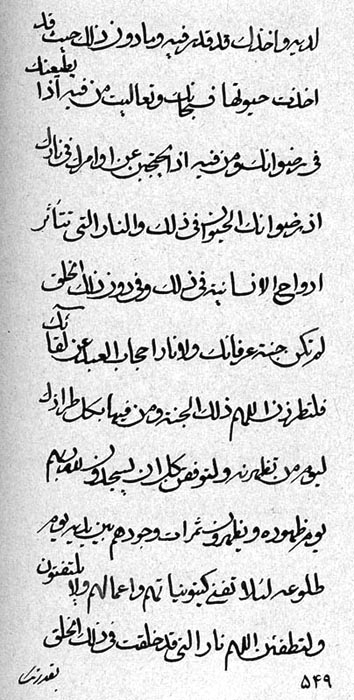 لديه واخذك قد قدر فيه وما دون ذلك حيث قد
اخذت حيوتها فسبحانك وتعاليت من فيه اذا يطيعنك
فى رضوانك ومن فيه اذ يحتجبن عن اوامرك فى نارك
اذ رضوانك الحيوان فى ذلك والنار التى تتأثر
ارواح الانسانية فى ذلك وفى دون ذلك الخلق
لم تكن جنة عرفانك ولا نار احجاب العباد عن لقائك
فلتطرزن اللهم ذلك الجنة ومن فيها بكل طرازك
ليوم من تظهرنه ولتوفقن كل ان يسجدون لله ربهم
يوم ظهوره ويظهرون ثمرات وجودهم بين يديه يوم
طلوعه لئلا تفنى كينونياتهم واعمالهم ولا يلتفتون
ولتطفئن اللهم نار التى قد خلقت فى ذلك الخلق
۵۴۹